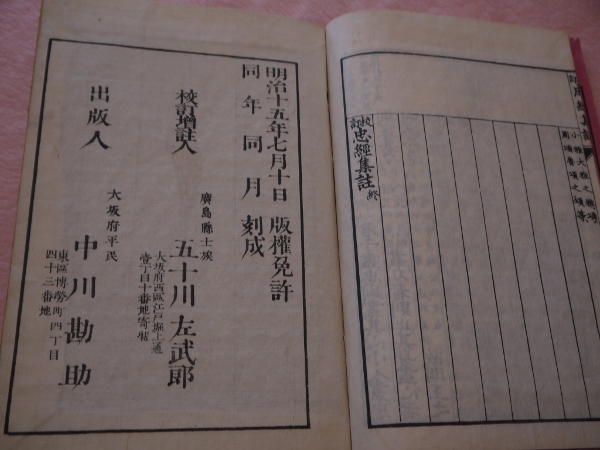 小雅大雅之職頌
周頌魯頌之頌等
校訂忠經集註終
明治十五年七月十日版權免許
同年同月刻成
廣島縣士族
校訂増註人 五十川左武郎
大坂府西區江戸堀上通
壹丁目十番地寄留
大坂府平民
出版人 中川勘助
東區博勞町四丁目
四十三番地